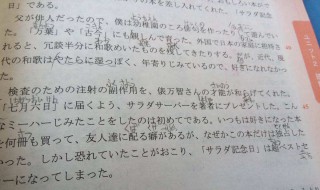 日」である。
父が俳人だったので、僕は幼稚園のころ俳句を作ったり
「万葉」や「古今」にも親しんで育った。外国で日本の家庭に招待さ
れると、冗談半分に和歌めいたものを残してきたりする。だが、近代、現
代の和歌はやたらに湿っぽく、年寄りじみているので、好きになれなかっ
た。
検査のための注射の副作用を、俵万智さんの才能が和らげてくれた。
「七月六日」に届くよう、サラダサーバーを著者にプレゼントした。こん
なミーハーじみたことをしたのは初めてである。いつもは好きになった本
を何冊も買って、友人達に配る癖があるが、なぜかこの本だけは独占した
かった。しかし恐れていたことがおこり、「サラダ記念日」は超ベストセ
ラーになってしまった。
ユニット2